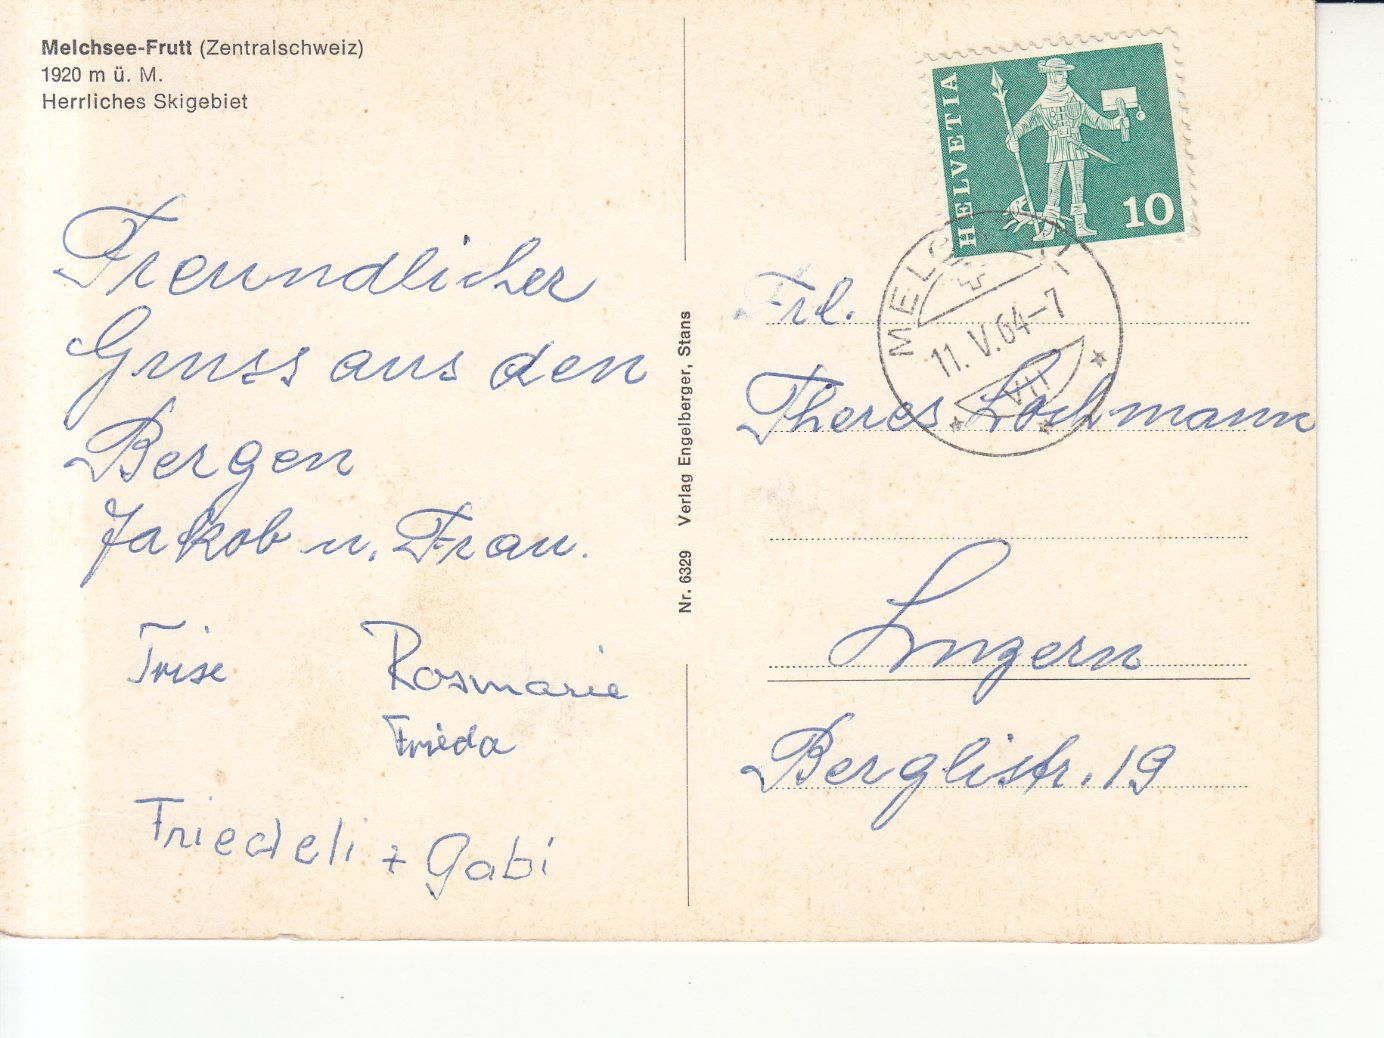 Melchsee-Frutt (Zentralschweiz)
1920 m ü. M.
Herrliches Skigebiet
Freundlicher
Gruss aus den
Bergen
Jakob u. Frau.
Rosmarie
Frieda
Friedeli + Gabi
Nr. 6329 Verlag Engelberger, Stans
HELVETIA
10
11. V. 64-7
VII
Frl.
Theres Lochmann
Luzern
Berglistr. 19